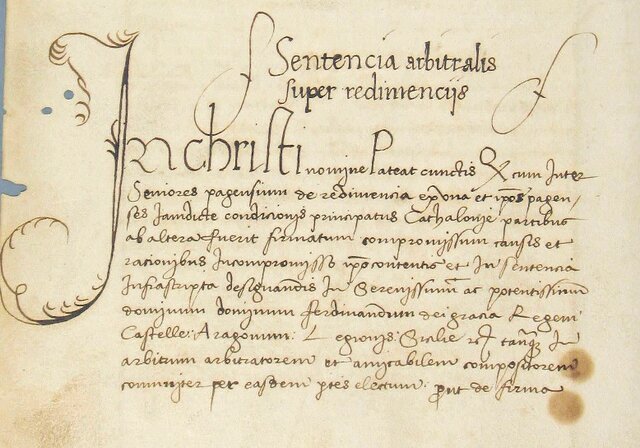 Sentencia arbitralis
super redimencijs
In christi nomine Pateat cunctis Qx cum Inter
Seniores pagensium de redimencia ex vna et ipos pagen-
ses Iamdicte condicionis principatus Cathalonie partibus
ab altera fuerit firmatum compromissum causis et
rationibus Incompromisso ipo contentis et In sentencia
Infrascripta designandis In Serenissimum ac potentissimum
dominum dominum ferdinandum dei gracia Regem
Castelle: Aragonum: Legionis: Sicilie tanqz In
arbitrum arbitratorem et amicabilem compositorem
comuniter per easdem ptes electum: prout de firma